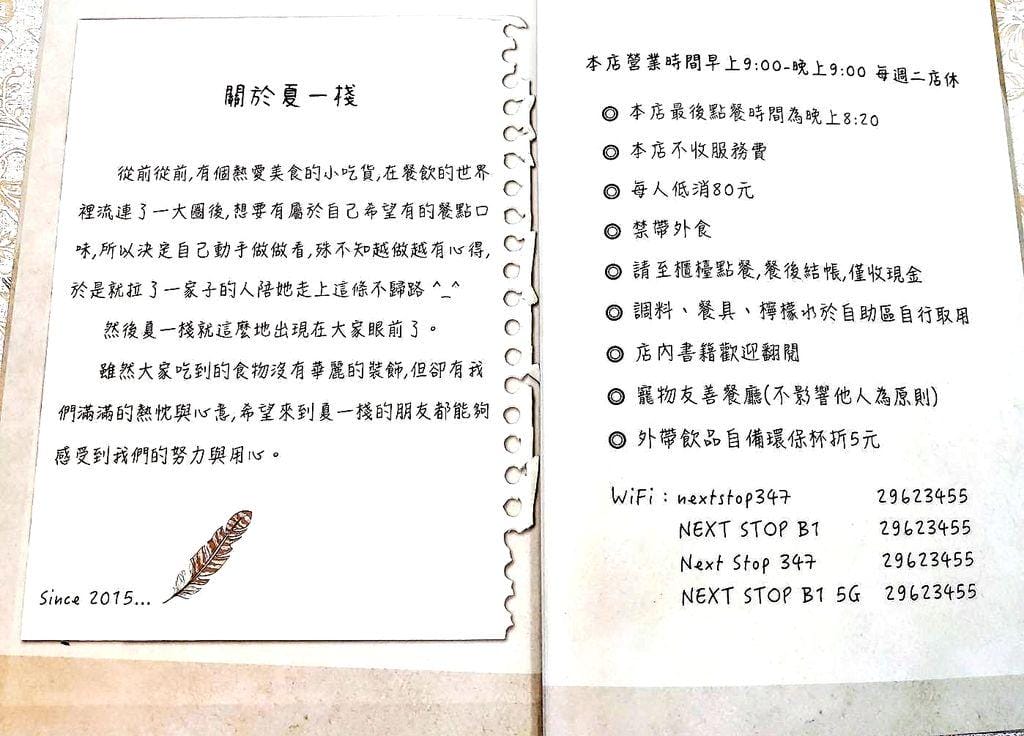 關於夏一棧
從前從前,有個熱愛美食的小吃貨,在餐飲的世界
裡流連了一大圈後,想要有屬於自己希望有的餐點口
味,所以決定自己動手做做看,殊不知越做越有心得,
於是就拉了一家子的人陪她走上這條不歸路 ^_^
然後夏一棧就這麼地出現在大家眼前了。
雖然大家吃到的食物沒有華麗的裝飾,但卻有我
們滿滿的熱忱與心意,希望來到夏一棧的朋友都能夠
感受到我們的努力與用心。
Since 2015...
本店營業時間早上9:00-晚上9:00 每週二店休
本店最後點餐時間為晚上8:20
本店不收服務費
每人低消80元
禁帶外食
請至櫃檯點餐,餐後結帳,僅收現金
調料、餐具、檸檬水於自助區自行取用
店內書籍歡迎翻閱
寵物友善餐廳(不影響他人為原則)
外帶飲品自備環保杯折5元
WiFi:nextstop347 29623455
NEXT STOP B1 29623455
Next Stop 347 29623455
NEXT STOP B1 5G 29623455